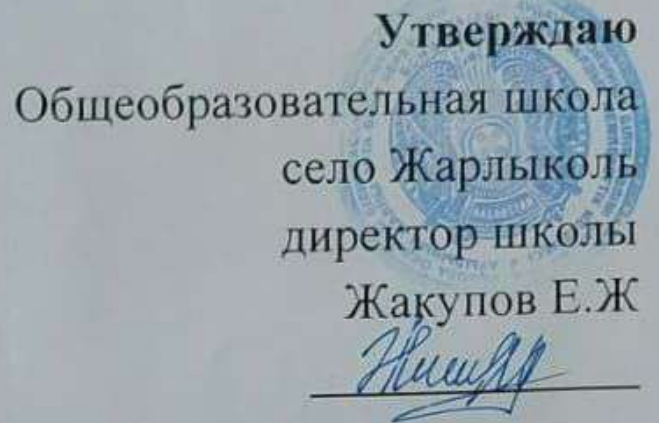 Утверждаю
Общеобразовательная школа
село Жарлыколь
директор школы
Жакупов Е.Ж